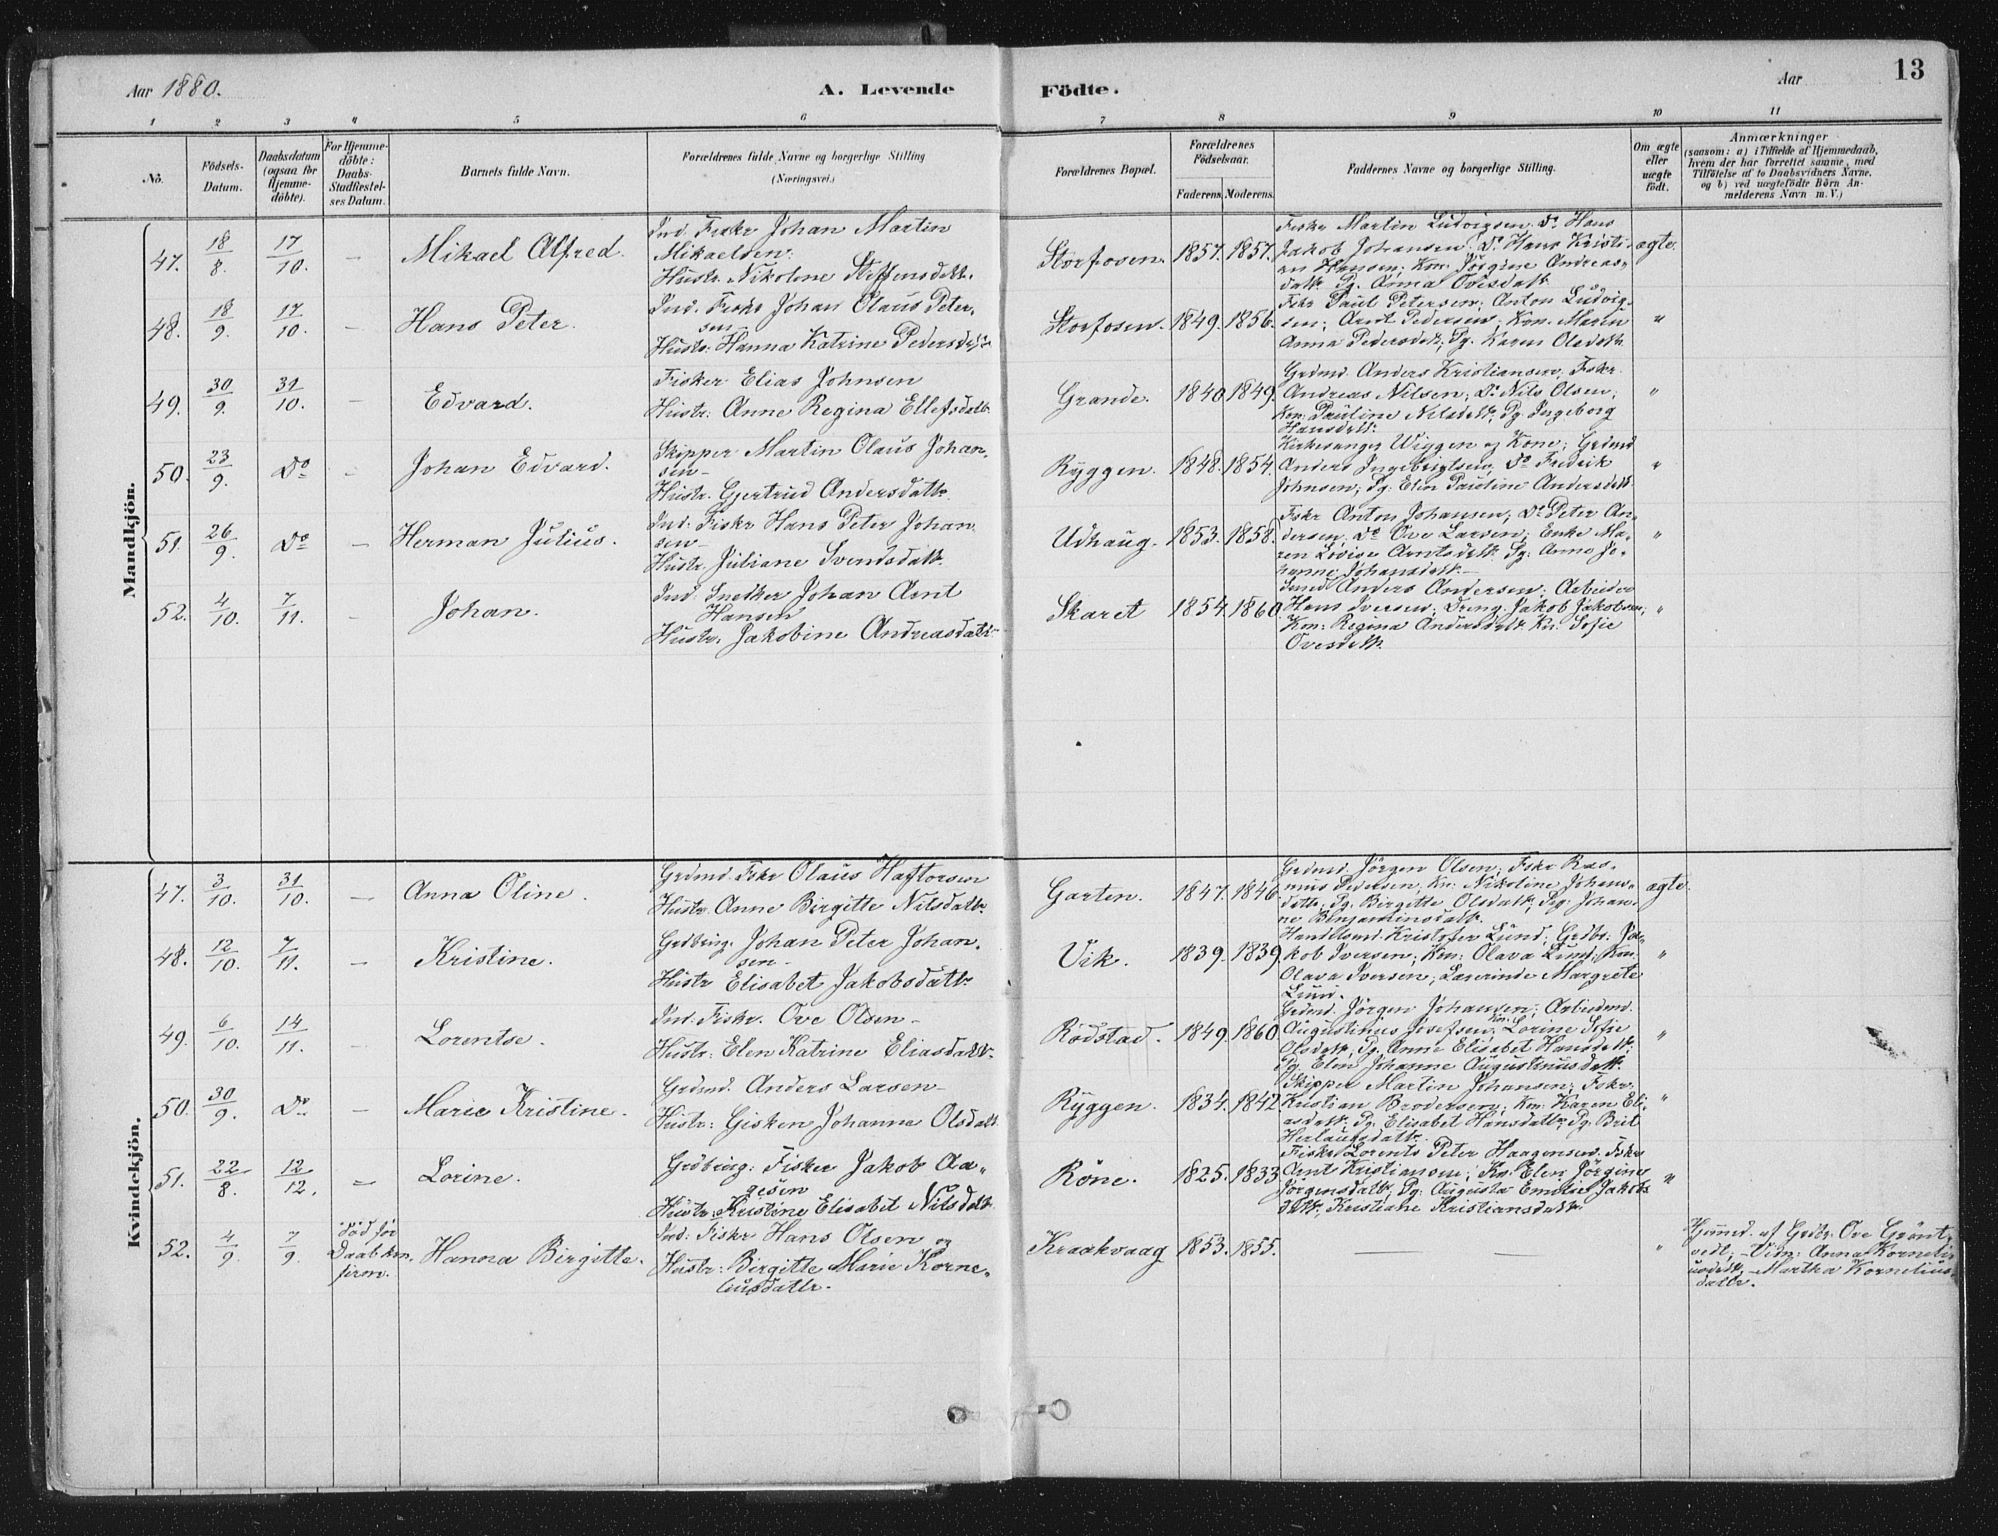 Aar 1880.
A. Levende
Födte.
Aar
13
1 2 3 4 5 6 7 8 9 10 11
No.
Födsels-
Datum.
Daabsdatum
(ogsaa for
Hjemme-
döbte).
For Hjemme-
döbte:
Daabs-
Stadfæstel-
ses Datum.
Barnets fulde Navn.
Forældrenes fulde Navne og borgerlige Stilling
(Næringsvei.)
Forældrenes Bopæl.
Forældrenes
Födselsaar.
Faderens. Moderens.
Faddernes Navne og borgerlige Stilling.
Om ægte
eller
uægte
födt.
Anmærkninger
(saasom: a) i Tilfælde af Hjemmedaab,
hvem der har forrettet samme, med
Tilföielse af to Daabsvidners Navne,
og b) ved uægtefödte Börn An-
melderens Navn m. V.)
Mandkjön.
47. 18/8. 17/10. — Mikael Alfred.
Ind. Fisker Johan Martin
Mikaelsen.
Hustr. Nikoline Steffensdatt.
Storfosen. 1857. 1857.
Fisker Martin Ludvigsen. Do Hans
Jakob Johansen. Do Hans Kristi-
an Hansen; Kon. Jörgine Andreas-
datt. Pg. Anna Ovesdatt.
ægte.
48. 18/9. 17/10. — Hans Peter.
Ind. Fisker Johan Olaus Peter-
sen
Hustr: Hanna Katrine Pedersdatter
Storfosen. 1849. 1856.
Fskr Paul Petersen; Anton Ludvig-
sen; Arnt Pedersen; Kon. Maren
Anna Pedersdatt; Pg. Karen Olsdatt.
"
49. 30/9. 31/10. — Edvard.
Fisker Elias Johnsen
Hustr: Anne Regina Ellefsdatt.
Grande. 1840 1849.
Grdmd. Anders Kristiansen; Fskr.
Andreas Nilsen; Do Nils Olsen;
Kon: Pauline Nilsdatt, Pg Ingeborg
Hansdatt.
"
50. 23/9. Do — Johan Edvard.
Skipper Martin Olaus Johan-
sen—
Hustr. Gjertrud Andersdatt.
Ryggen. 1848. 1854.
Kirkesanger Wiggen og Kone; Grdmd
Anders Ingebrigtsen, Do Fredrik
Johnsen; Pg. Elen Pauline Andersdatt.
"
51. 26/9. Do — Herman Julius.
Ind. Fiskr Hans Peter Johan
sen—
Hustr. Juliane Svendsdatt.
Udhaug. 1853. 1858.
Fskr Anton Johansen; Do Peter An-
dersen, Do Ove Larsen; Enke Ma-
ren Lovise Arntsdatt. Pg: Anna Jo-
hanne Johansdatt.—
"
52. 4/10. 7/11. — Johan.
Ind. Snedker Johan Arnt
Hansen
Hustr: Jakobine Andreasdatt—
Skaret 1854. 1860.
Smed Anders Andersen; Arbeider
Hans Iversen; Dreng Jakob Jakobsen;
Kon: Regina Andersdatt. Kn: Sofie
Ovesdatt.
"
Kvindekjön.
47. 3/10. 31/10. — Anna Oline.
Grdmd. Fskr Olaus Haftorsen
Hustr. Anne Birgitte Nilsdatt.
Garten. 1847. 1846.
Grdmd. Jörgen Olsen; Fskr Ras-
mus Pedersen; Kn: Nikoline Johans-
datt; Pg. Birgitte Olsdatt; Pg. Johan-
ne Benjaminsdatt.
ægte.
48. 12/10. 7/11. — Kristine.
Grdbrug. Johan Peter Johan-
sen.
Hustr Elisabet Jakobsdatt.
Vik. 1839. 1839.
Handelsmd. Kristofer Lund; Grdbr. Ja-
kob Iversen; Kon: Olava Lund; Kon:
Olava Iversen; Lærerinde Margrete
Lund.
"
49. 6/10. 14/11. — Lorentse.
Ind. Fiskr. Ove Olsen—
Hustr: Elen Katrine Eliasdatt.
Rödstad. 1849. 1860.
Grdmd. Jörgen Johansen; Arbeidsmd.
Augustinus Josefsen; Kon. Lorine Sofie
Olsdatt, Pg. Anne Elisabet Hansdatt;
Pg. Elen Johanne Augustinusdatt.
"
50. 30/9. Do. — Marie Kristine.
Grdmd. Anders Larsen—
Hustr: Gisken Johanna Olsdatt.
Ryggen. 1834. 1842.
Skipper Martin Johansen; Fskr.
Kristian Brodersen; Kon: Karen Eli-
asdatt. Pg: Elisabet Hansdatt. Pg. Brit
Herlaugsdatt.
"
51. 22/8. 12/12. — Lorine.
Grdbrug: Fisker Jakob Aa-
gesen
Hustr: Kristine Elisabet Nilsdatt.
Röne. 1825. 1833
Fiskr Lorents Peter Haagensen. Fskr
Arnt Kristiansen; Kn. Elen Jörgine
Jörgensdatt; Pg: Augusta Emelie Jakobs-
datt, Kristiane Kristiansdatt.
"
52. 4/9. 7/9.
död för
Daab kon-
firm.
Hanna Birgitte.
Ind. Fiskr Hans Olsen og
Hustr: Birgitte Marie Korne-
liusdatter.
Kraakvaag 1853. 1855. — —
"
Hjmmd. af Grdbr. Ove Grönt-
vedt; — Vidn: Anna Korneli-
usdatt, — Martha Kornelius-
datt.